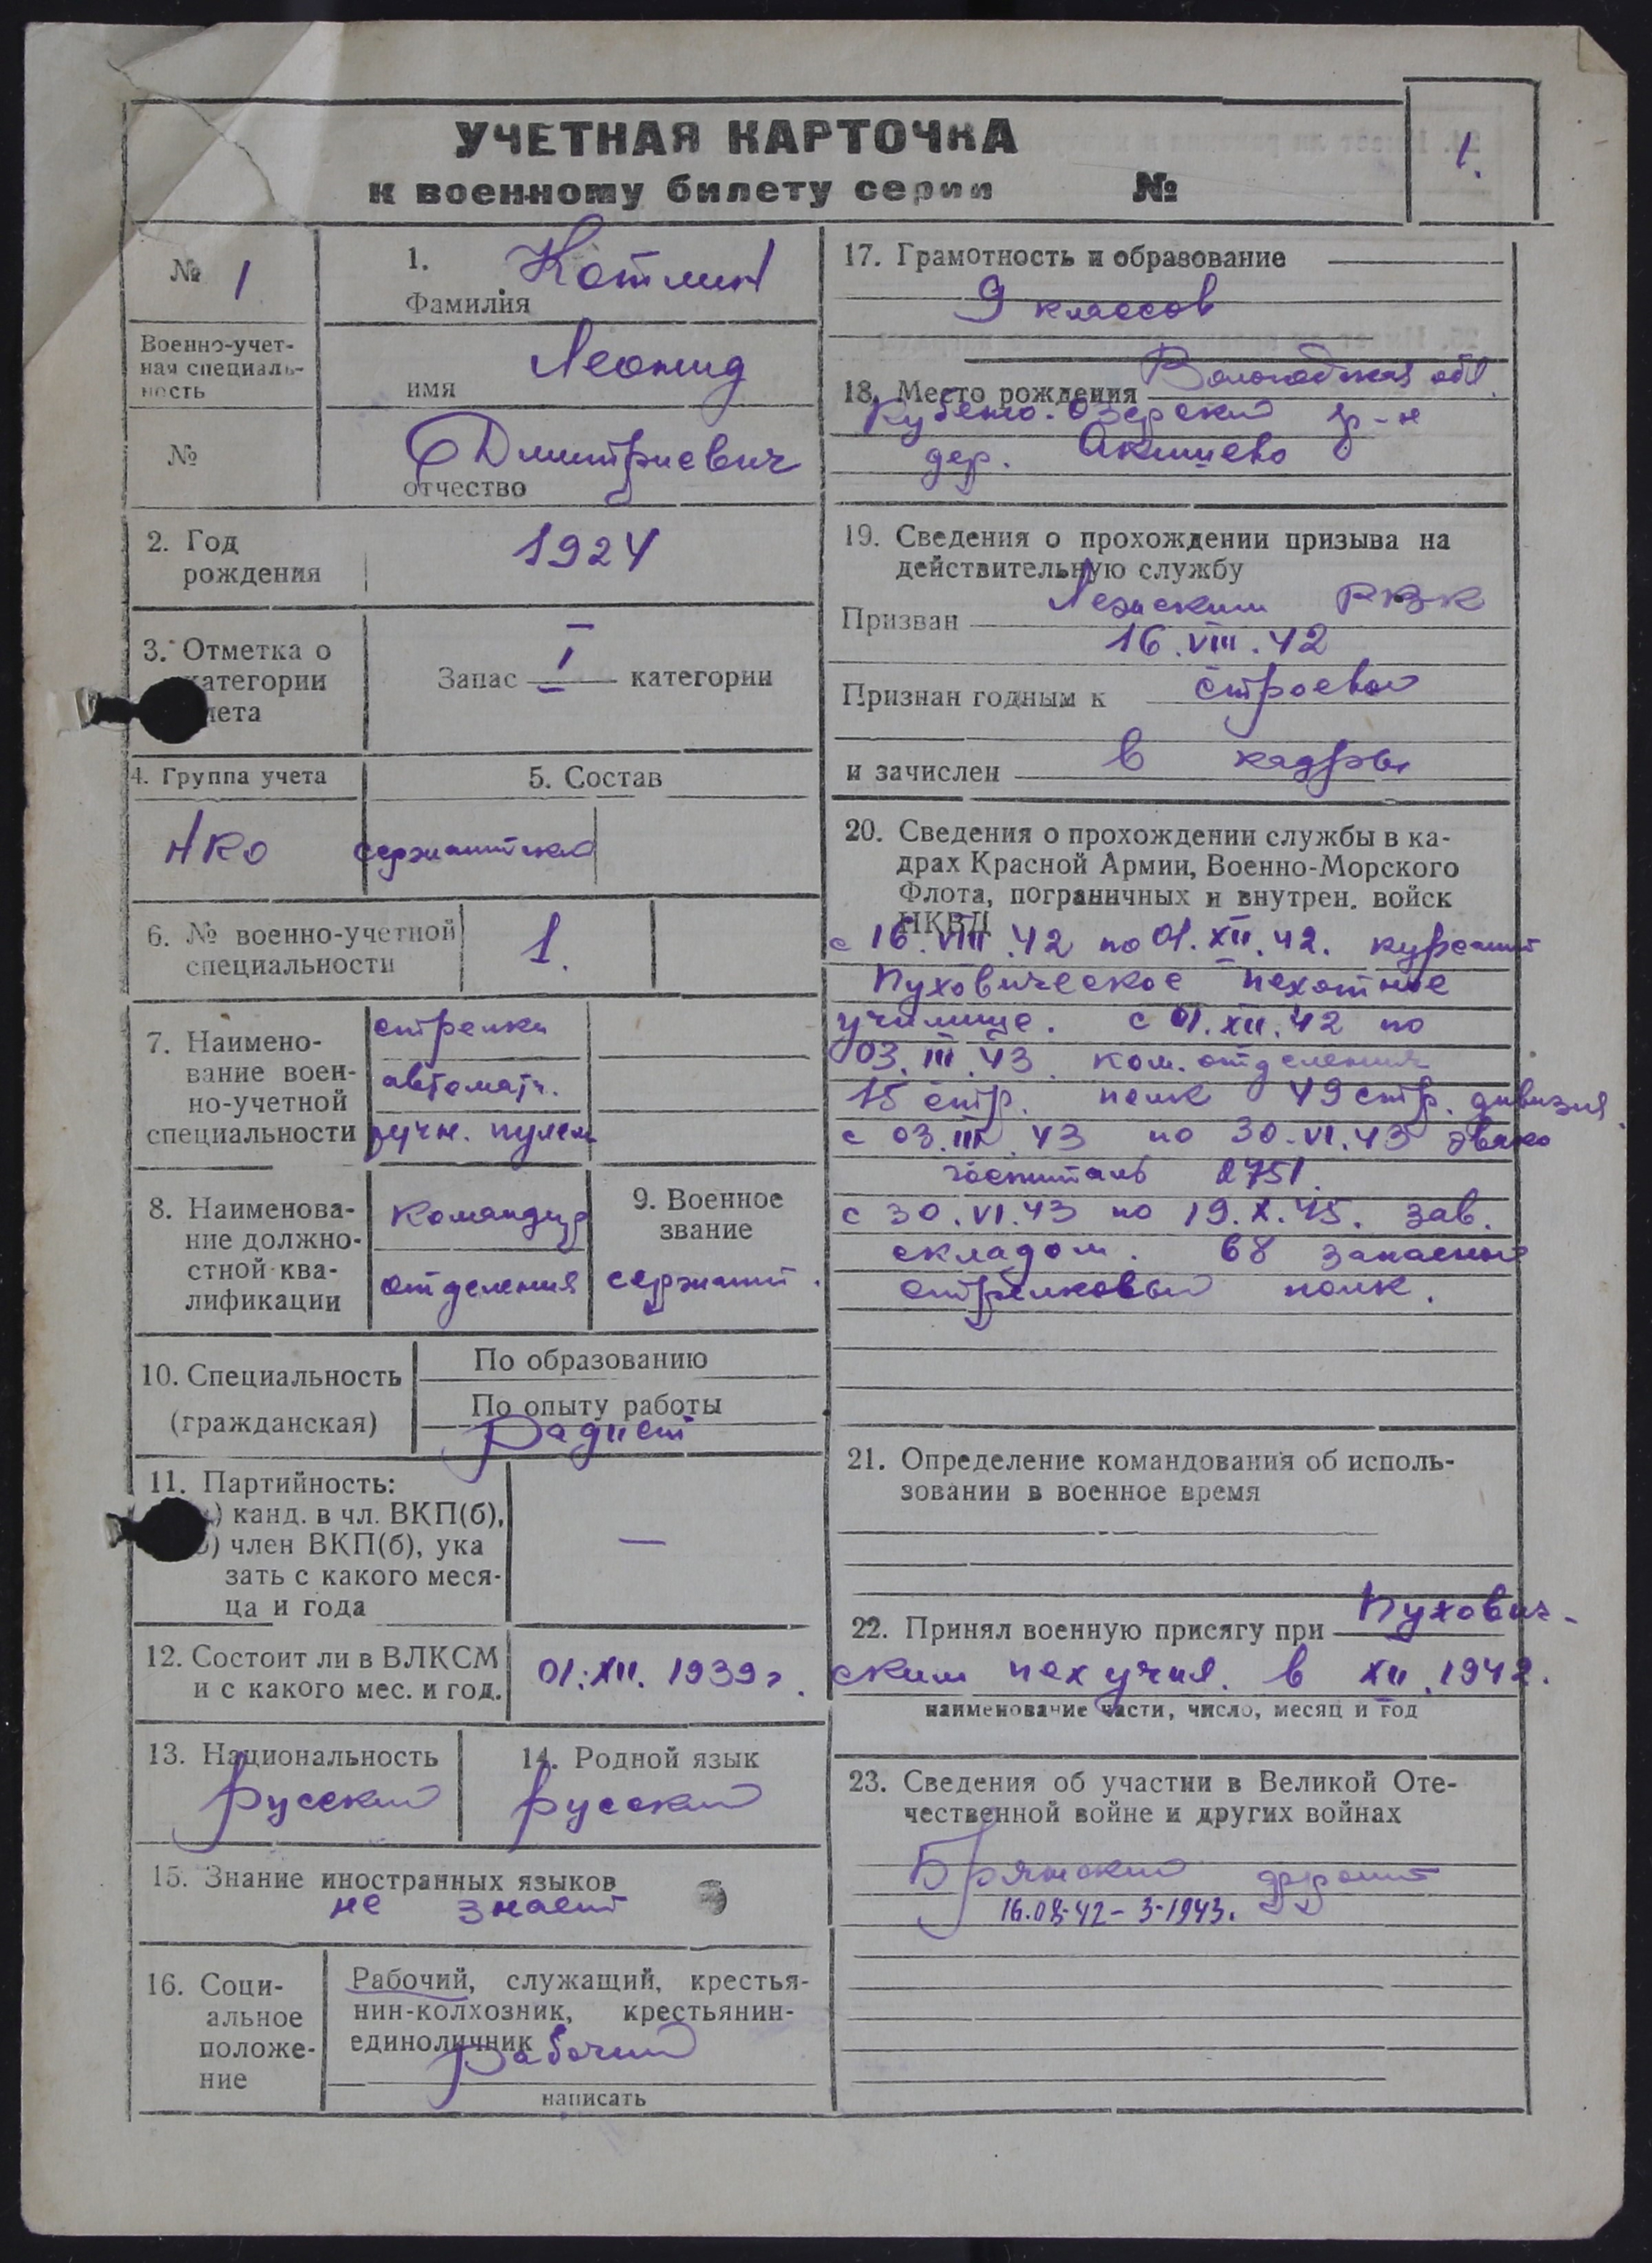 УЧЕТНАЯ КАРТОЧКА
1.
к военному билету серии №
№ 1
1. Котлин
Фамилия
Военно-учет-
ная специаль-
ность
Леонид
имя
№
Дмитриевич
отчество
2. Год
рождения
1924
3. Отметка о
категории
учета
Запас I категории
4. Группа учета
5. Состав
НКО
сержантский
6. № военно-учетной
специальности
1.
7. Наимено-
вание воен-
но-учетной
специальности
стрелки
автоматч.
ручн. пулем
8. Наименова-
ние должно-
стной ква-
лификации
Командир
отделения
9. Военное
звание
сержант.
10. Специальность
(гражданская)
По образованию
По опыту работы
радист
11. Партийность:
а) канд. в чл. ВКП(б),
б) член ВКП(б), ука
зать с какого меся-
ца и года
—
12. Состоит ли в ВЛКСМ
и с какого мес. и год.
01.XII. 1939 г.
13. Национальность
русский
14. Родной язык
русский
15. Знание иностранных языков
не знает
16. Соци-
альное
положе-
ние
Рабочий, служащий, крестья-
нин-колхозник, крестьянин-
единоличник
рабочий
написать
17. Грамотность и образование
9 классов
18. Место рождения Вологодская обл.
Кубено-Озерский р-н
дер. Акишево
19. Сведения о прохождении призыва на
действительную службу
Призван Лежским РВК
16.VIII.42
Признан годным к строевой
и зачислен в кадры
20. Сведения о прохождении службы в ка-
драх Красной Армии, Военно-Морского
Флота, пограничных и внутрен. войск
НКВД
с 16.VIII.42 по 01.XII.42. курсант
Пуховическое пехотное
училище. с 01.XII.42 по
03.III.43. ком. отделения
15 стр. полк 49 стр. дивизия.
с 03.III.43 по 30.VI.43 эвако
госпиталь 2751.
с 30.VI.43 по 19.X.45. зав.
складом. 68 запасный
стрелковый полк.
21. Определение командования об исполь-
зовании в военное время
22. Принял военную присягу при Пухович-
ским пех учил. в XII.1942.
наименование части, число, месяц и год
23. Сведения об участии в Великой Оте-
чественной войне и других войнах
Брянский фронт
16.08.42 - 3-1943.